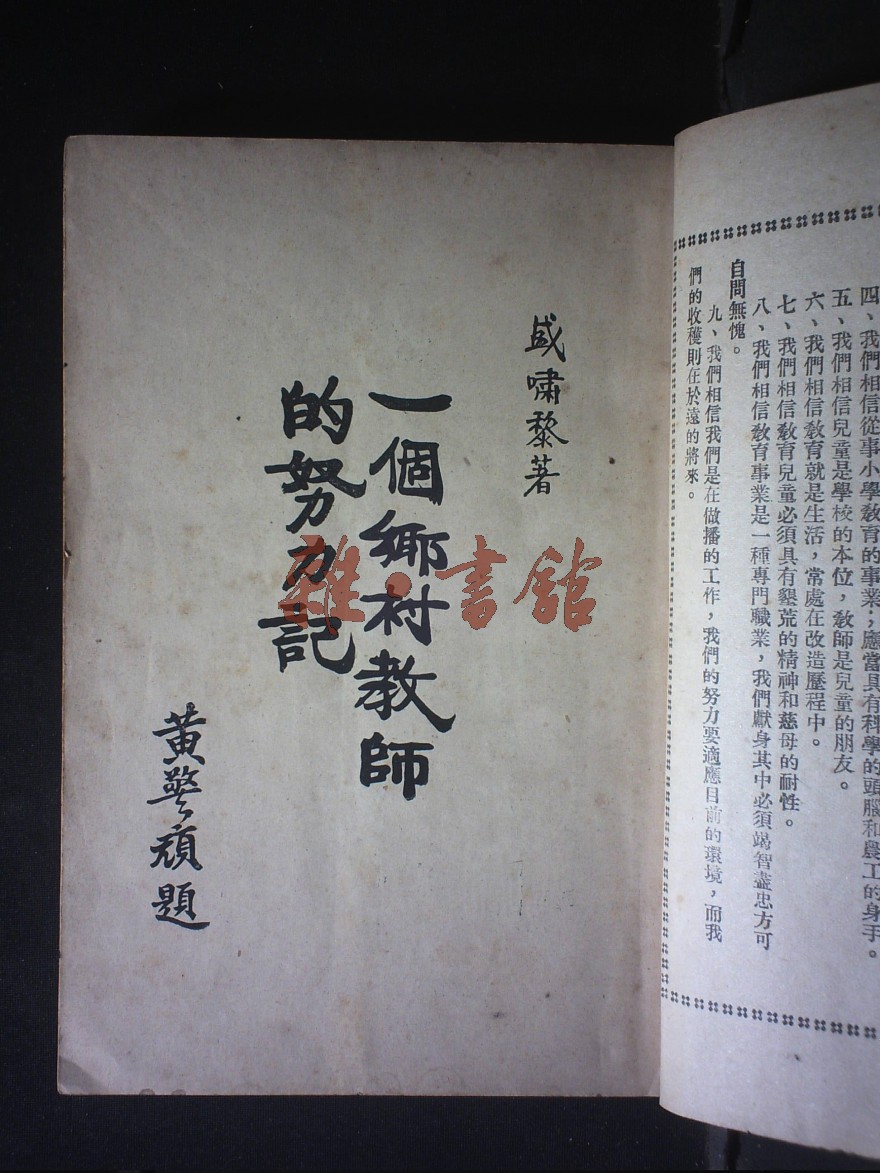 四、我們相信從事小學教育的事業；應當具有科學的頭腦和農工的身手。
五、我們相信兒童是學校的本位，教師是兒童的朋友。
六、我們相信教育就是生活，常處在改造歷程中。
七、我們相信教育兒童必須具有墾荒的精神和慈母的耐性。
八、我們相信教育事業是一種專門職業，我們獻身其中必須竭智盡忠方可
自問無愧。
九、我們相信我們是在做播的工作，我們的努力要適應目前的環境，而我
們的收穫則在於遠的將來。
盛嘯黎著
一個鄉村教師
的努力記
黃警頑題
雜·書館